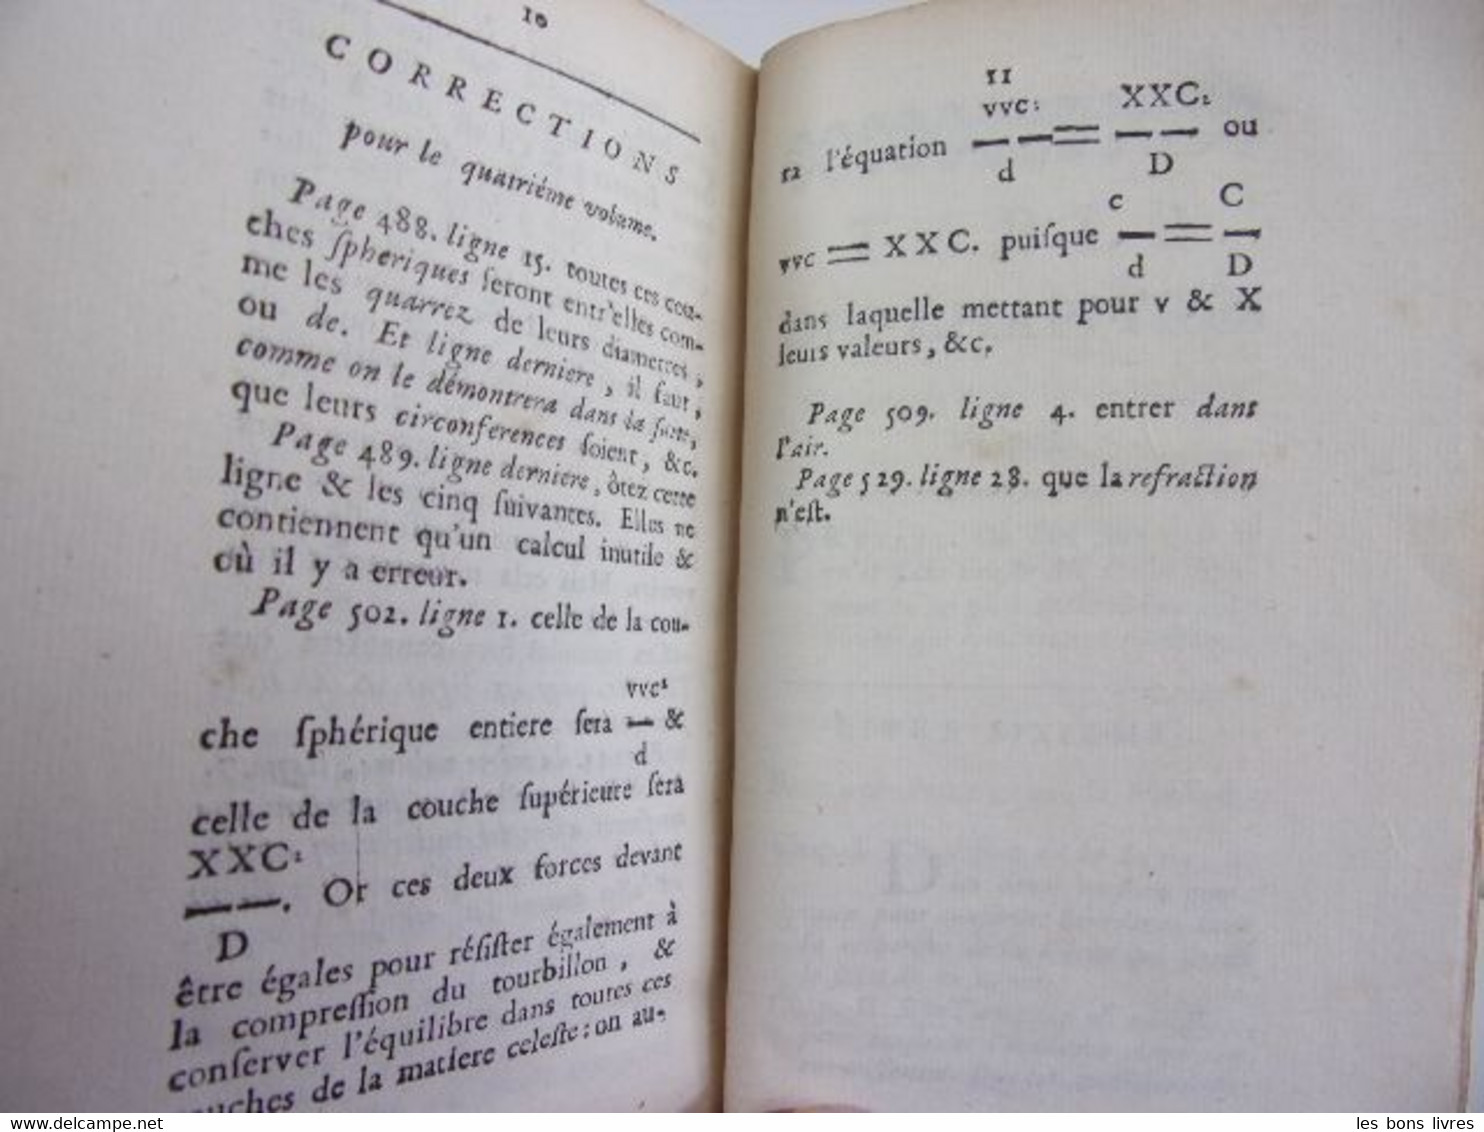 10
CORRECTIONS
pour le quatriéme volume.
Page 488. ligne 15. toutes ces cou-
ches ſpheriques ſeront entr'elles com-
me les quarrez de leurs diametres,
ou de. Et ligne derniere, il faut,
comme on le démontrera dans la ſuite,
que leurs circonferences ſoient, &c.
Page 489. ligne derniere, ôtez cette
ligne & les cinq ſuivantes. Elles ne
contiennent qu'un calcul inutile &
où il y a erreur.
Page 502. ligne 1. celle de la cou-
vvc²
che ſphérique entiere ſera — &
d
celle de la couche ſupérieure ſera
XXC²
— —. Or ces deux forces devant
D
être égales pour réſiſter également à
la compreſſion du tourbillon, &
conſerver l'équilibre dans toutes ces
couches de la matiere celeſte : on au-
11
vvc² XXC²
ra l'équation — — = — — ou
d D
c C
vvc = XXC. puiſque — = —
d D
dans laquelle mettant pour v & X
leurs valeurs, &c.
Page 509. ligne 4. entrer dans
l'air.
Page 529. ligne 28. que la refraction
n'eſt.
www.delcampe.net
les bons livres